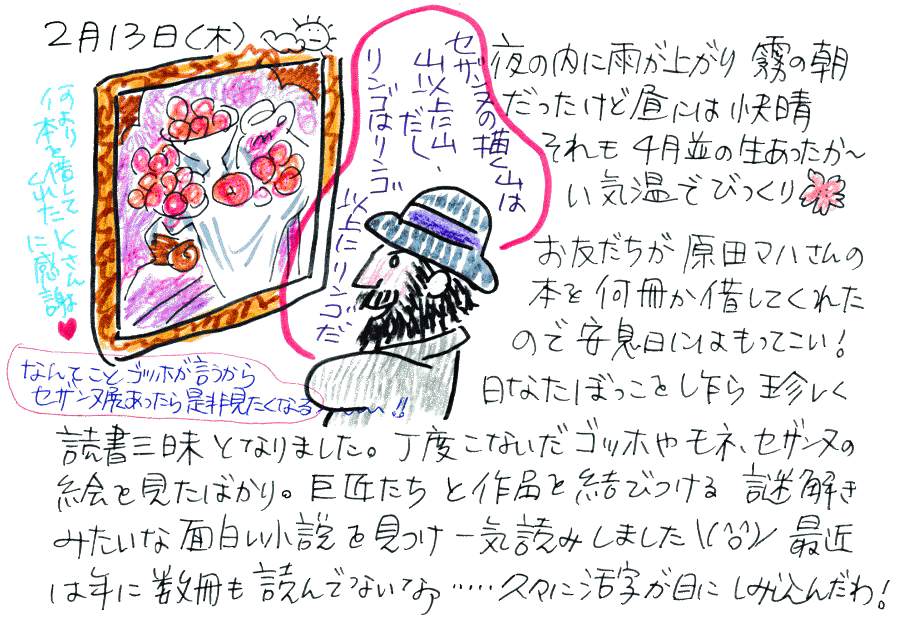 2月13日(木)
何より本を借して
くれたKさんに感謝♥
セザンヌの描く山は
山以上に山、
だし
リンゴはリンゴ
以上にリンゴだ
なんてことゴッホが言うから
セザンヌ展あったら是非見たくなる
い!!
夜の内に雨が上がり 霧の朝
だったけど昼には快晴
それも4月並の生あったか〜
い気温でびっくり
お友だちが 原田マハさんの
本を何冊か借してくれた
ので安息日にはもってこい!
日なたぼっこをし乍ら 珍しく
読書三昧となりました。丁度こないだゴッホやモネ、セザンヌの
絵を見たばかり。巨匠たちと作品を結びつける 謎解き
みたいな面白い小説を見つけ一気読みしました\(^o^)/ 最近
は年に数冊も読んでないなァ……久々に活字が目にしみ込んだわ!